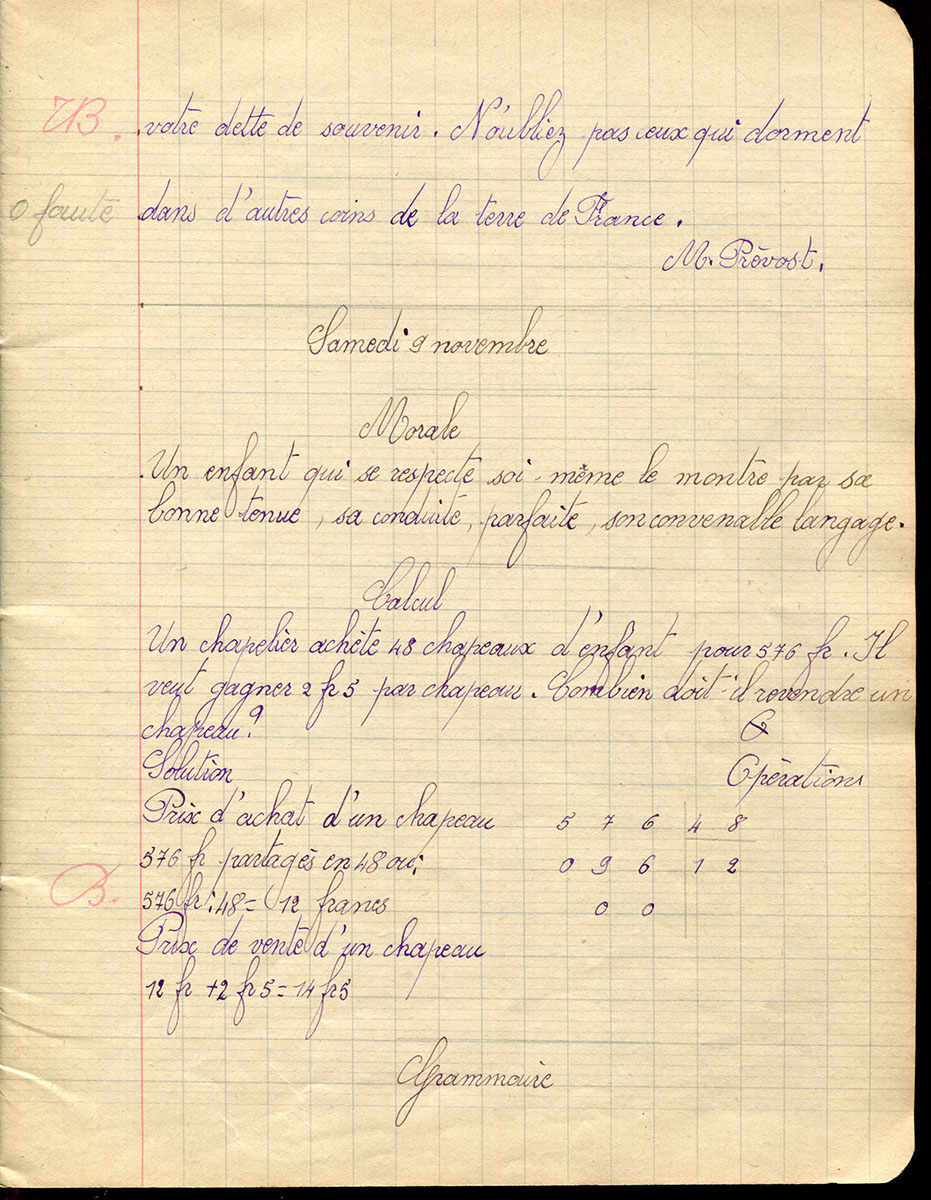 TB.
votre dette de souvenir. N'oubliez pas ceux qui dorment
0 faute
dans d'autres coins de la terre de France.
M. Prévost.
Samedi 9 novembre
Morale
Un enfant qui se respecte soi-même le montre par sa
bonne tenue, sa conduite, parfaite, son convenable langage.
Calcul
Un chapelier achète 48 chapeaux d'enfant pour 576 fr. Il
veut gagner 2 fr 5 par chapeau. Combien doit-il revendre un
chapeau?
Solution Opérations
Prix d'achat d'un chapeau 5 7 6 4 8
576 fr partagés en 48 ou: 0 9 6 1 2
B.
576 fr : 48 = 12 francs 0 0
Prix de vente d'un chapeau
12 fr + 2 fr 5 = 14 fr 5
Grammaire